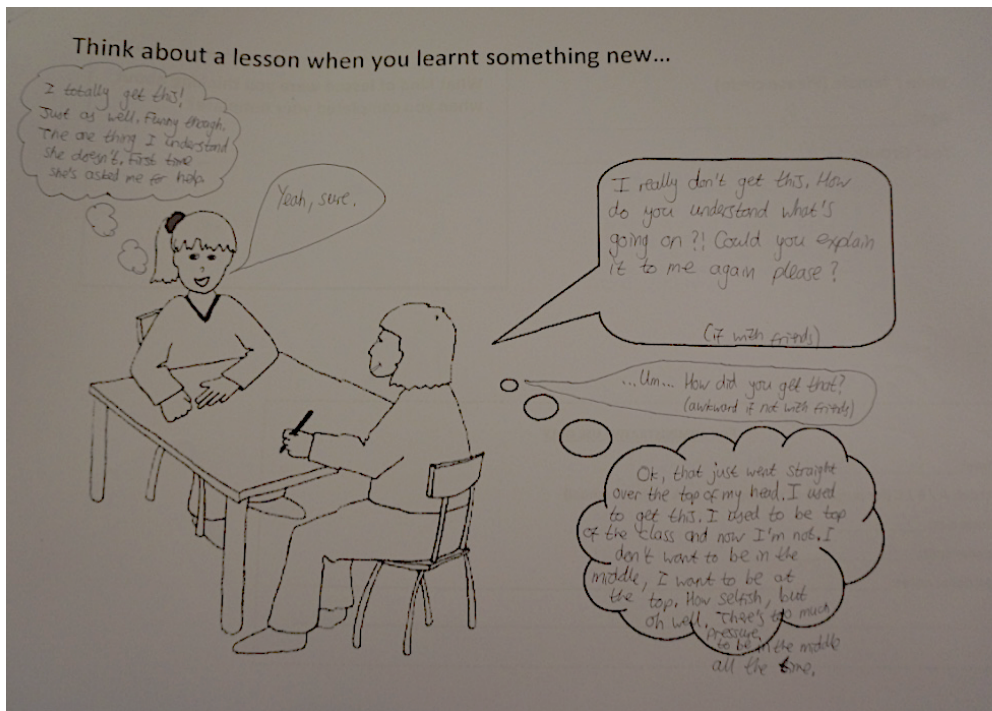 Think about a lesson when you learnt something new...
I totally get this!
Just as well. Funny though.
The one thing I understand
she doesn't. First time
she's asked me for help.
Yeah, sure.
I really don't get this. How
do you understand what's
going on?! Could you explain
it to me again please?
(if with friends)
...Um... How did you get that?
(awkward if not with friends)
Ok, that just went straight
over the top of my head. I used
to get this. I used to be top
of the class and now I'm not. I
don't want to be in the
middle, I want to be at
the top. How selfish, but
oh well. There's too much
pressure,
to be in the middle
all the time.